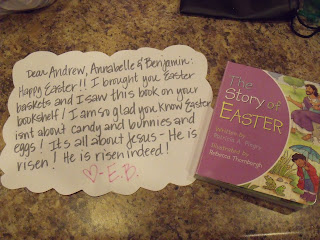 Dear Andrew, Annabelle & Benjamin:
Happy Easter!! I brought you Easter
baskets and I saw this book on your
bookshelf! I am so glad you know Easter
isnt about candy and bunnies and
eggs! It's all about Jesus - He is
risen! He is risen indeed!
♡- E.B.
The
Story of
EASTER
Written by
Patricia A. Pingry
Illustrated by
Rebecca Thornburgh